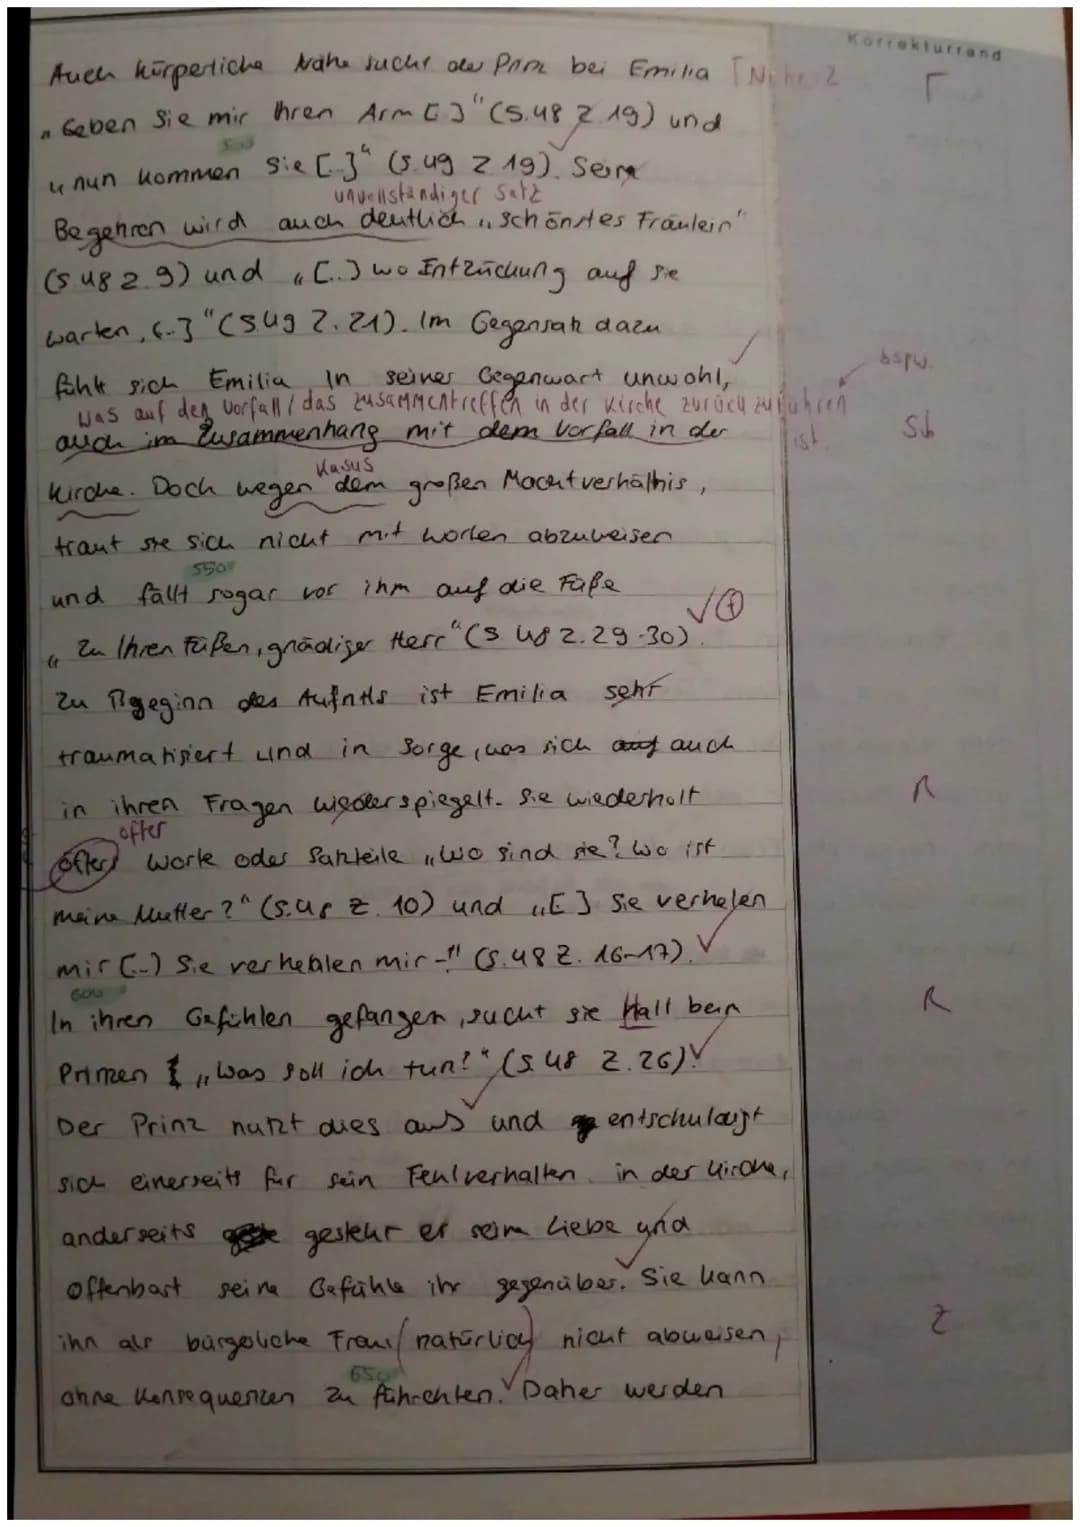 Korrekturrand
Auch körperliche Nähe sucht der Prinz bei Emilia
„Geben Sie mir Ihren Arm [ ]" (S.48 Z.19) und
500
„nun kommen Sie [..]" (S.49 Z 19). Seine
unvollständiger Satz
Begehren wird auch deutlich „schönstes Fräulein"
(S 48 Z.9) und „[..] wo Entzückung auf sie
warten, [..]" (S.49 Z.21). Im Gegensatz dazu
fühlt sich Emilia in seiner Gegenwart unwohl,
bspw.
was auf den Vorfall / das Zusammentreffen in der Kirche zurückzuführen
ist.
auch im Zusammenhang mit dem Vorfall in der
Sb
Kasus
Kirche. Doch wegen dem großen Machtverhältnis,
traut sie sich nicht mit Worten abzuweisen
550
und fällt sogar vor ihm auf die Füße
„Zu Ihren Füßen, gnädiger Herr" (S 48 Z.29-30).
Zu Bgeginn des Aufritts ist Emilia sehr
traumatisiert und in Sorge, was sich auf auch
in ihren Fragen wiederspiegelt. Sie wiederholt
R
öfter
öfters Worte oder Satzteile „Wo sind sie? Wo ist
meine Mutter?" (S.48 Z. 10) und „[ ] Sie verhelen
mir (..) Sie verhehlen mir -!" (S.48 Z. 16-17).
600
In ihren Gefühlen gefangen, sucht sie Hall beim
R
Prinzen „Was soll ich tun?" (S.48 Z.26).
Der Prinz nutzt dies aus und entschuldigt
sich einerseits für sein Fehlverhalten in der Kirche,
anderseits gesteht er seine Liebe und
offenbart seine Gefühle ihr gegenüber. Sie kann
ihn als bürgeliche Frau (natürlich) nicht abweisen,
Z
650
ohne Konsequenzen zu führchten. Daher werden